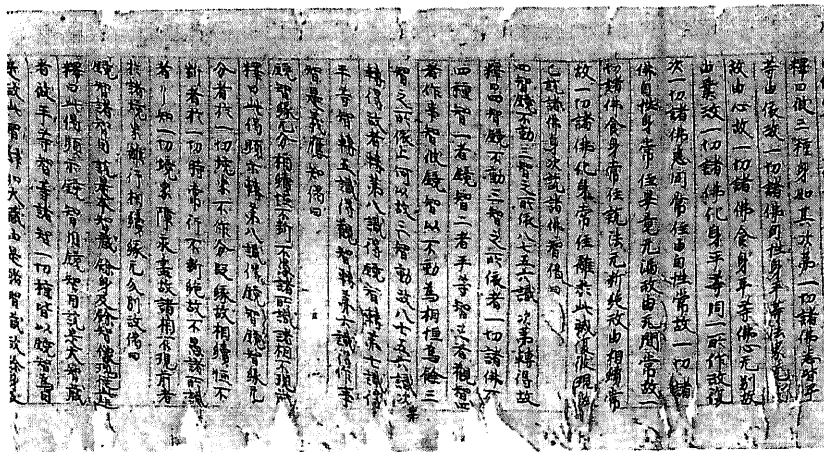 釋曰彼三種身如其次第一切諸佛悉皆平
等由依故一切諸佛自性身平等法界无別
故由心故一切諸佛食身平等佛心无別故
由業故一切諸佛化身平等同一所作故復
次一切諸佛悉同常住由自性常故一切諸
佛自性身常住畢竟无漏故由无間常故一
切諸佛食身常住說法无斷絕故由相續常
故一切諸佛化身常住雖於此滅復彼現故
已說諸佛身次說諸佛智偈曰
四智鏡不動三智之所依八七五六識次第轉得故
釋曰四智鏡不動三智之所依者一切諸佛有
四種智一者鏡智二者平等智三者觀智四
者作事智彼鏡智以不動為相恒為餘三
智之所依止何以故三智動故八七五六識次
第轉得故者轉第八識得鏡智轉第七識得
平等智轉五識得觀智轉第六識得作事
智是義應知偈曰
鏡智緣无分相續恒不斷不愚諸所識諸相不現前
釋曰此偈顯示轉第八識得鏡智鏡智緣无
分者於一切境界不作分段緣故相續恒不
斷者於一切時常行不斷絕故不愚諸所識
者了知一切境界障永盡故諸相不現前者
於諸境界離行相緣緣无分別故偈曰
鏡智諸智因說是大智藏餘身及餘智像現從此起
釋曰此偈顯示鏡智用鏡智因說是大智藏
者彼平等智等諸智一切種皆以鏡智為因
是故此智譬如大藏由是諸智藏故餘身及